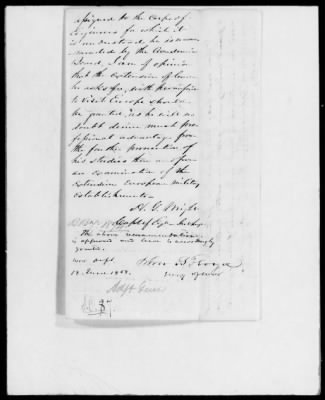 assigned to the Corps of
Engineers for which it
is understood he is recom-
mended by the Academic
Board, I am of opinion
that the extension of leave
he asks for, with permission
to visit Europe should
be granted, as he will no
doubt derive much pro-
fessional advantage from
the further prosecution of
his studies there and from
an examination of the
extensive European military
establishments.
H. G. Wright
Capt of Engrs
The above recommendation
is approved and leave is accordingly
granted.
War Dept.
John B. Floyd
June 1858.
Secy of War
Adjt Genl